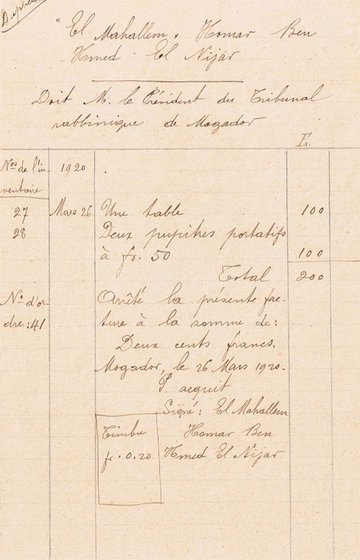 "El Mahallem" Homar Ben
Hmed El Nijar
Doit M. le Président du Tribunal
rabbinique de Mogador
Fr.
Nos de l'in
ventaire
1920
27 Mars 26 Une table 100
28 Deux pupitres portatifs
à fr. 50 100
Total 200
No d'or
dre: 41
Arrêté la présente fac-
ture à la somme de:
Deux cents francs.
Mogador, le 26 Mars 1920.
P. acquit
Signé: El Mahallem
Homar Ben
Hmed El Nijar
Timbre
fr. 0.20